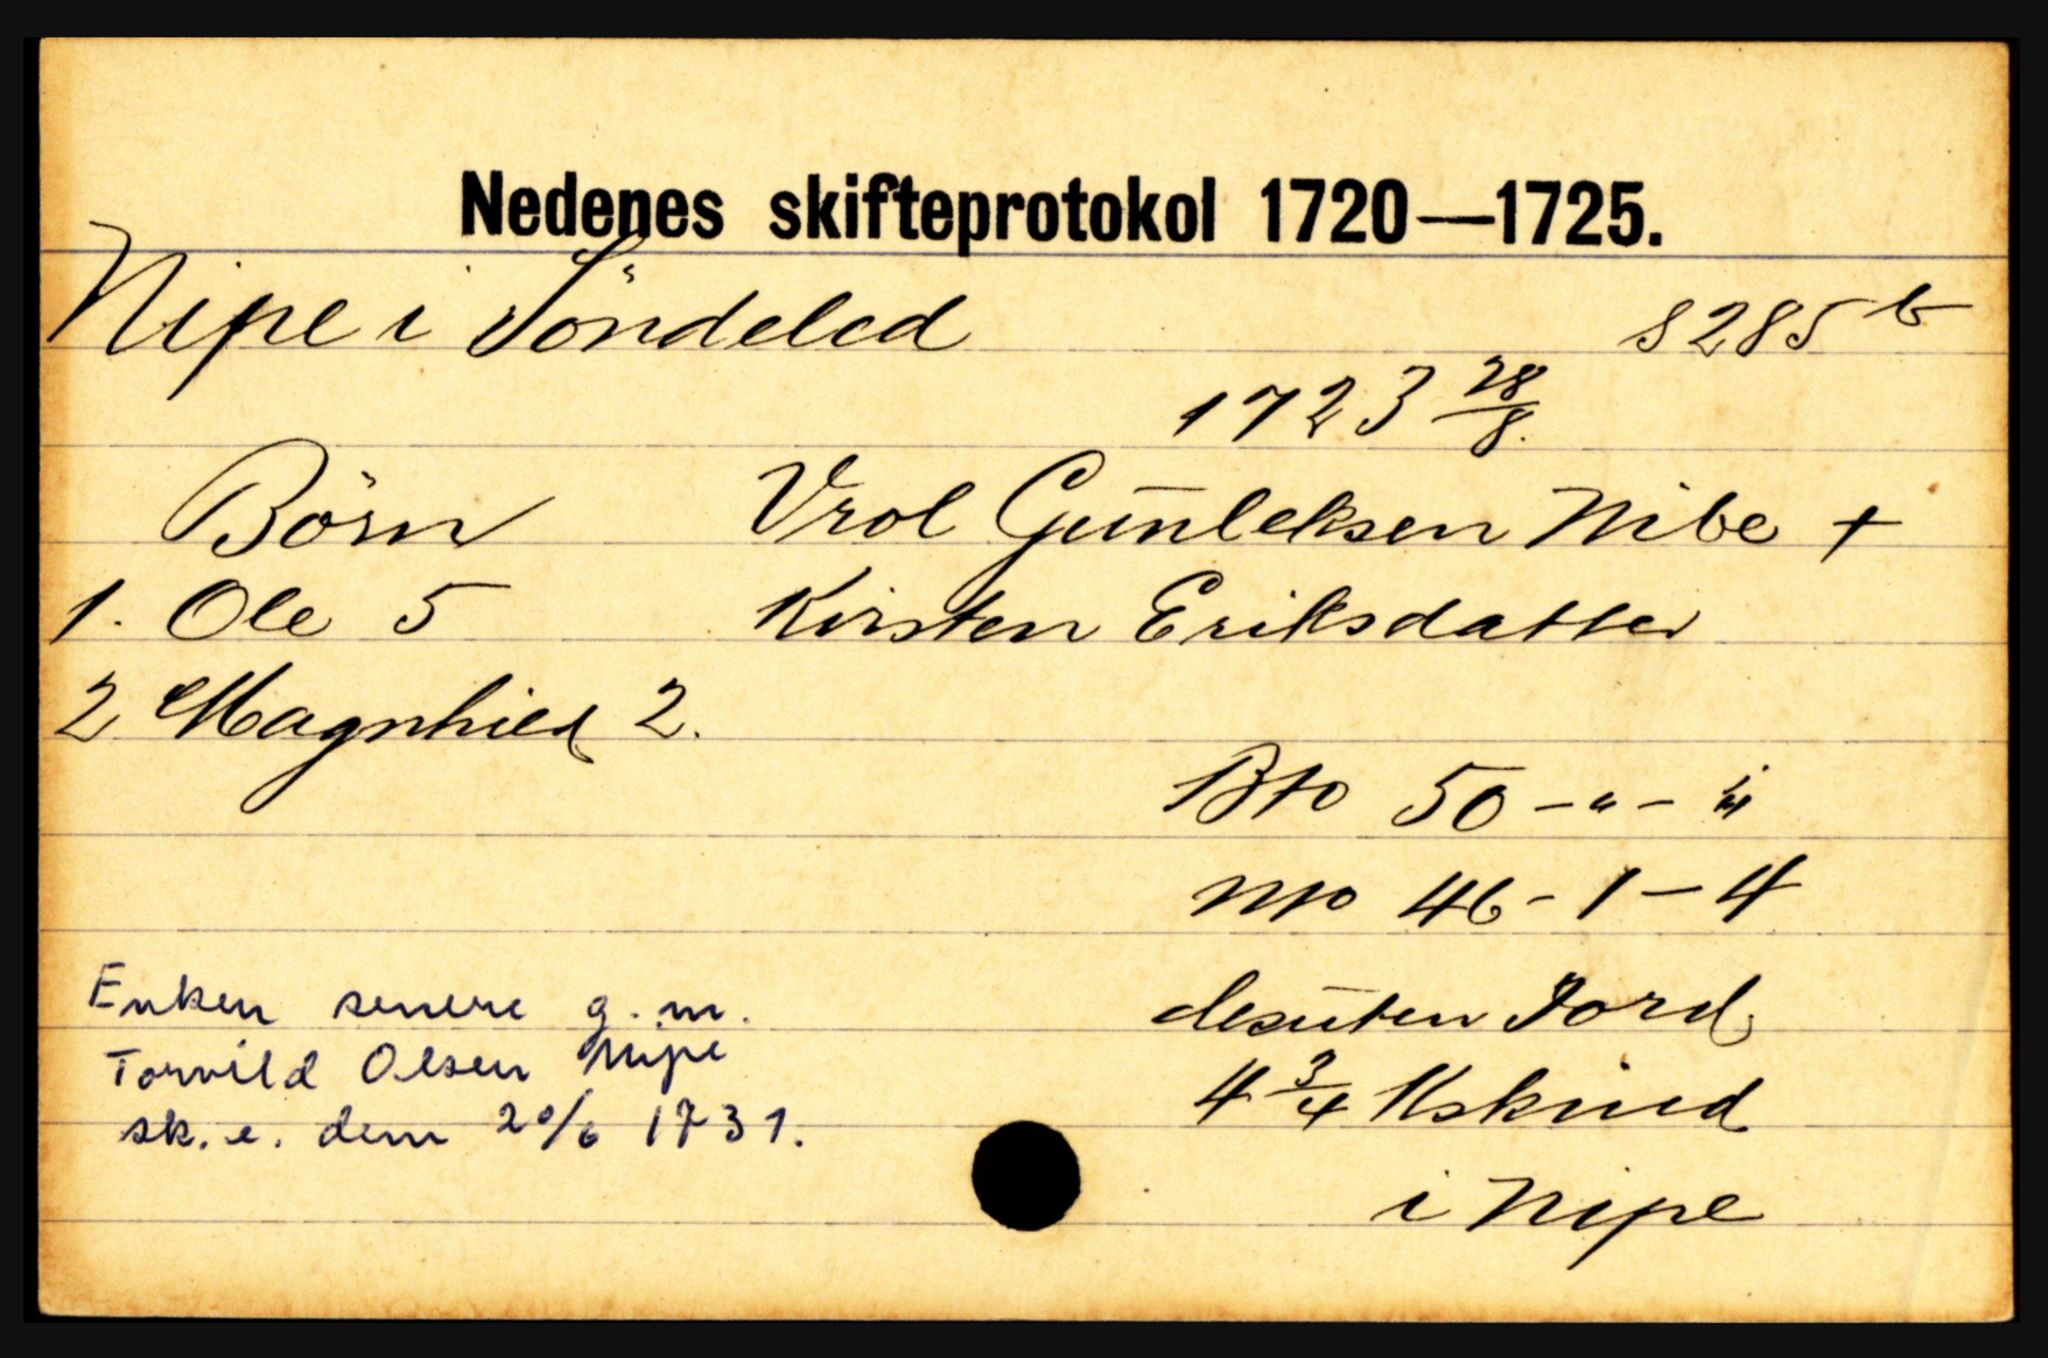 Nedenes skifteprotokol 1720—1725.
Nipe i Söndeled
S 285 b
1723 28/8.
Börn
Vrol Gunleksen Nibe +
1. Ole 5
Kirsten Eriksdatter
2 Magnhild 2.
Bto 50 - " - "
Nto 46 - 1 - 4
desuten Jord
4 3/4 Kskind
i Nipe
Enken senere g. m.
Torvild Olsen Nipe
sk. e. dem 20/6 1731.